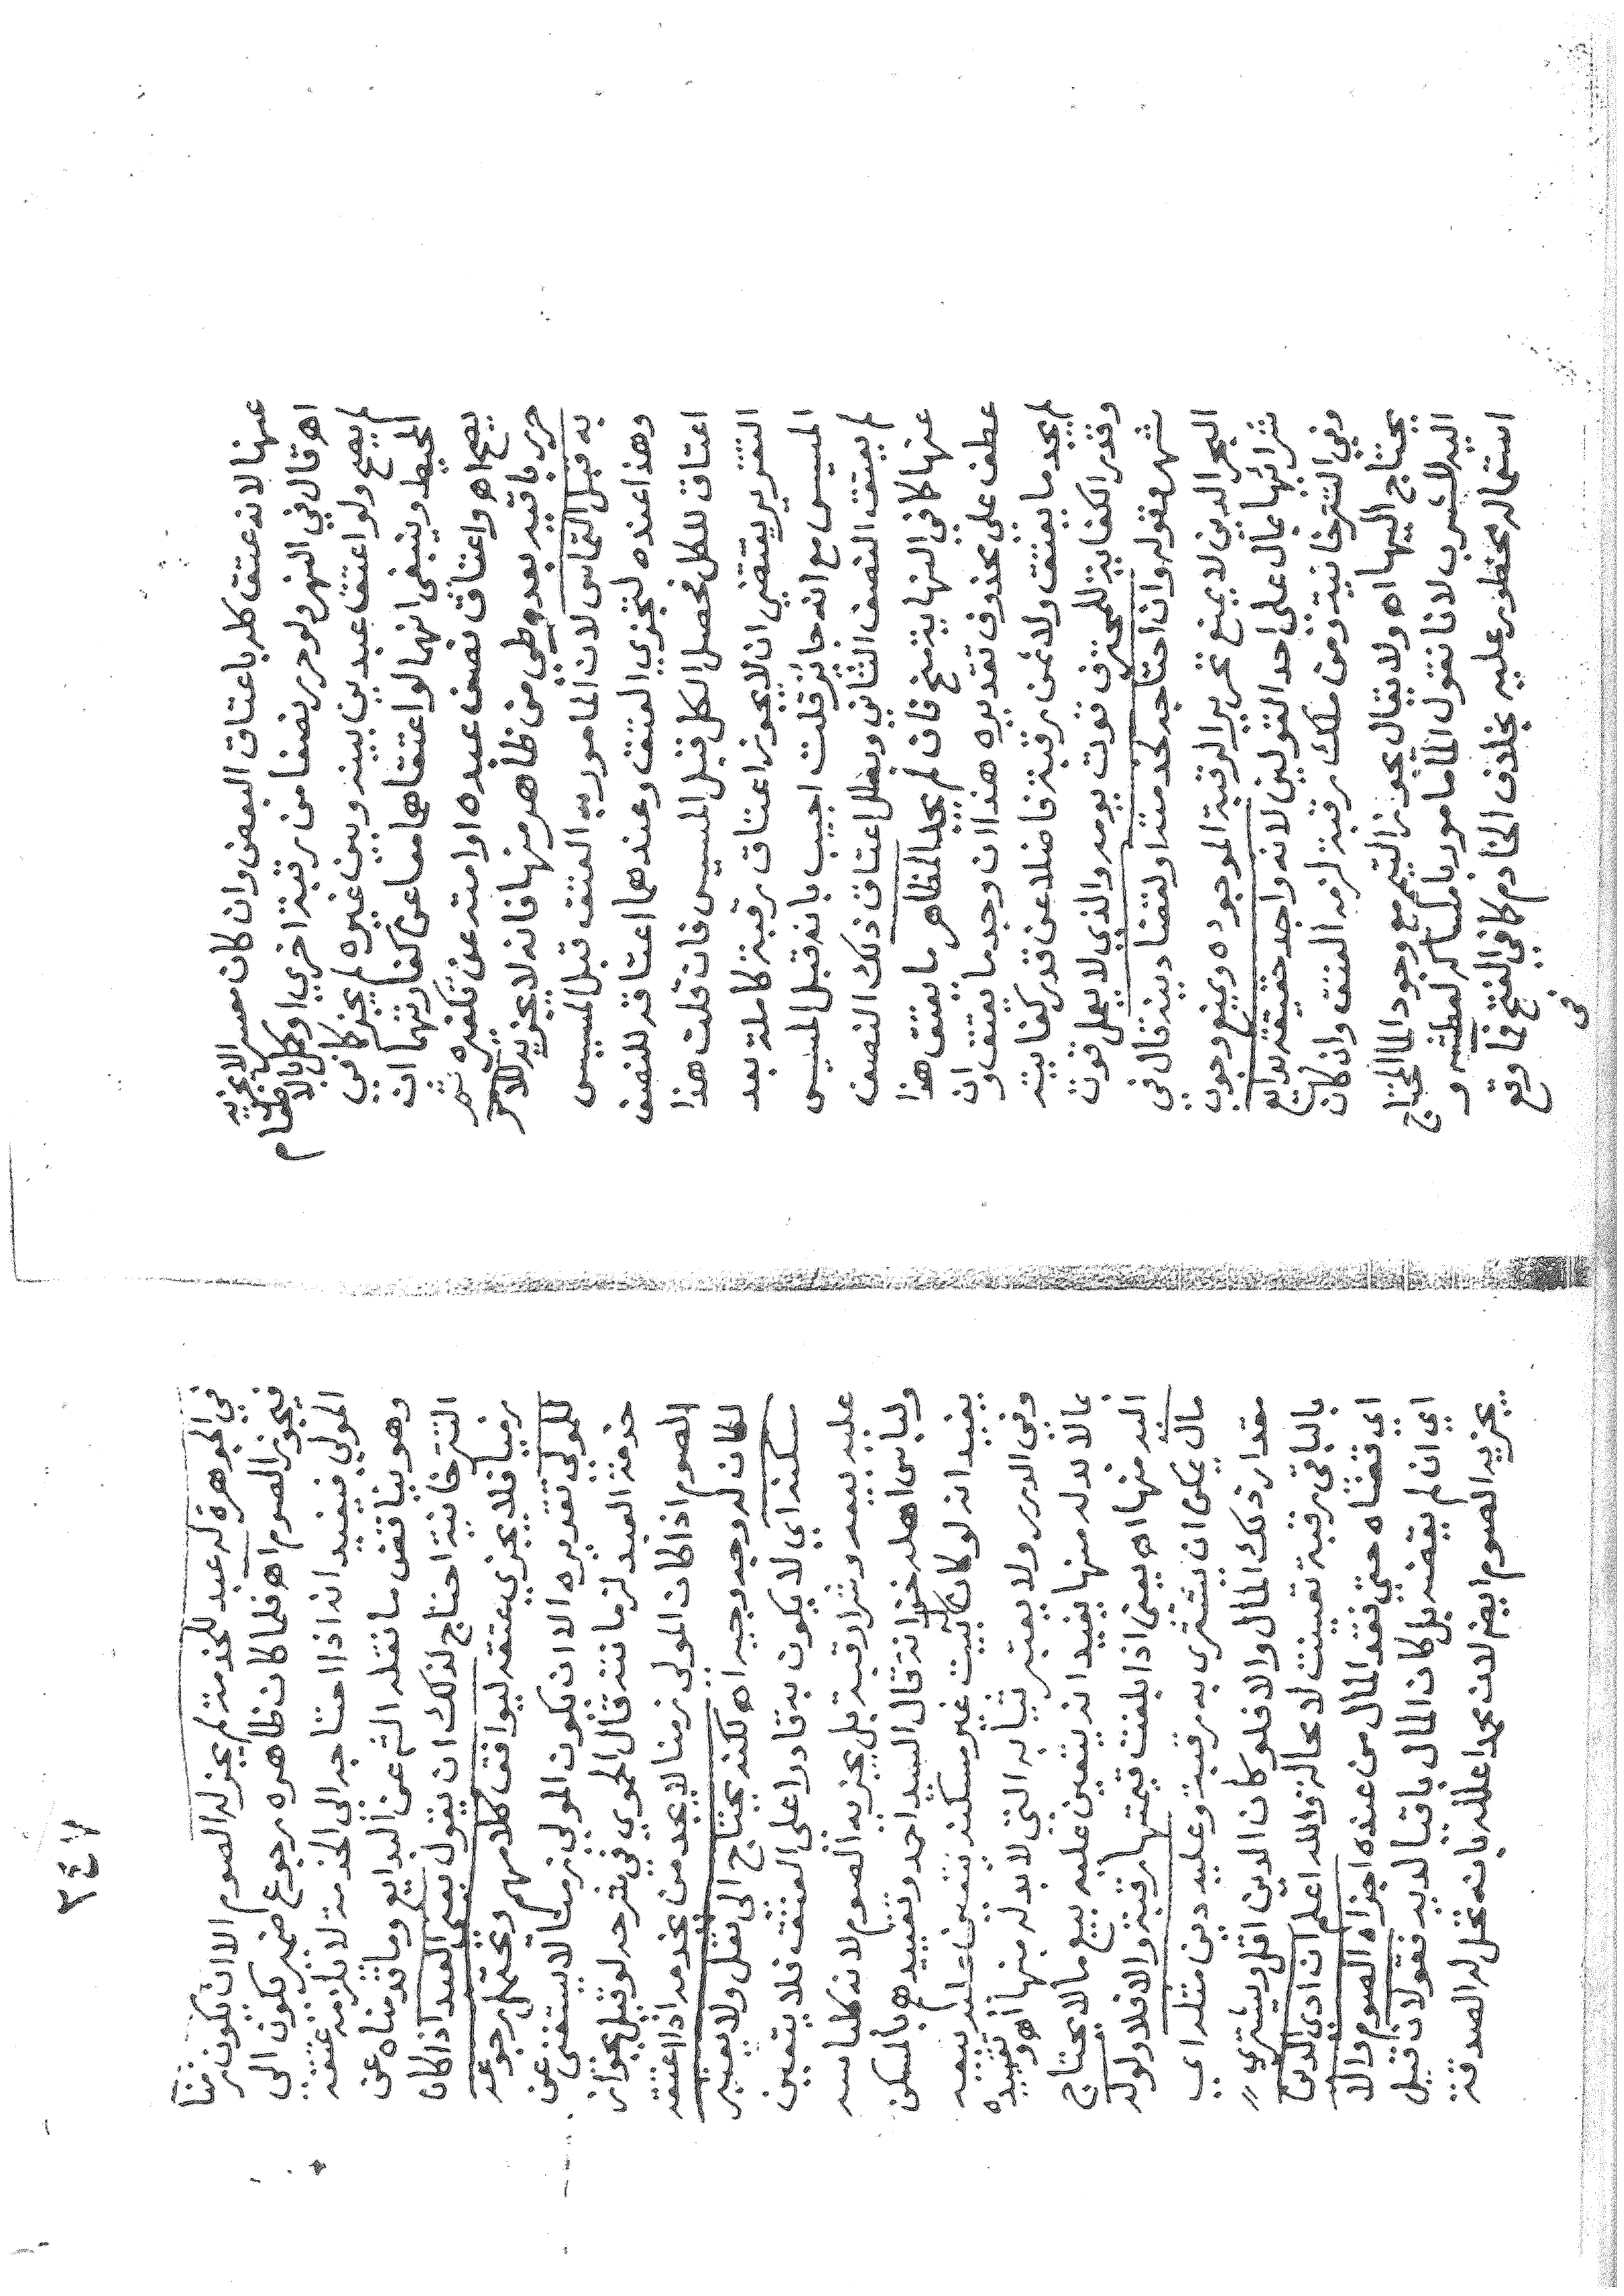 عنها لانه عتق كله باعتاق البعض وان كان معسرا لا يجزيه
اه قال في النهر ولو حرر نصفا من رقبة اخري او كل بالاطعام
لم يصح ولو اعتق عبدين بينه وبين غيره لم يجز كما في
المحيط وينبغي انهما لو اعتقاهما معا عن كفارتهما ان
يصح اه واعتاق نصف عبده او امته عن تكفيره ثم
حرر باقيه بعد وطئ من ظاهر منها فانه لا يجزيه للامر
به قبل التماس لان المامور به العتق قبل المسيس
وهذا عنده لتجزي العتق وعندهما اعتاقه للنصف
اعتاق للكل فحصل الكل قبل المسيس فان قلت هذا
التقرير يقتضي ان لا يجوز اعتاق رقبة كاملة بعد
المسيس مع انه جائز قلت اجيب بانه قبل المسيس
لم يعتق النصف الثاني وبطل اعتاق ذلك النصف
عنها كما في النهاية منح فان لم يجد المظاهر ما يعتق هذا
عطف علي محذوف تقديره هذا ان وجد ما يعتق وان
لم يجد ما يعتق ولا ثمن رقبة فاضلا عن قدر كفايته
وقدر الكفاية للمحترف قوت يومه والذي لا يعمل قوت
شهر فقوله وان احتاجه لخدمته او لقضا دينه قال في
البحر الدين لا يمنع تحرير الرقبة الموجوده ويمنع وجوب
شرائها بمال على احد القولين لانه واجد حقيقة بدايع
وفي التترخانية ومن ملك رقبة لزمه العتق وان كان
يحتاج اليها اه ولا يقال يجوز التيمم مع وجود الما المحتاج
اليه للشرب لانا نقول الما مامور بامساكه لعطشه و
استعماله محظور عليه بخلاف الخادم كما في الفتح فما وقع
في
٢٤٧
في الجوهرة له عبد للخدمة لم يجز له الصوم الا ان يكون زمنا
فيجوز الصوم اه فلما كان ظاهره رجوع ضمير يكون الى
المولي فيفيد انه اذا احتاجه الى الخدمة لا يلزمه عتقه
وهو يناقض ما نقله الش عن البدايع وما قدمناه عن
التترخانية احتاج لذلك ان يقول يعني العبد اذا كان
زمنيا فلا يجزي عتقه ليوافق كلامهم ويحتمل رجوعه
للمولي تقديره الا ان يكون المولي زمنا لا يستغني عن
خدمة العبد لزمانته قال الحموي في شرحه لو قيل بجواز
الصوم اذا كان المولى زمنا لا يجد من يخدمه اذا اعتقه
لكان له وجه وجيه اه لكنه يحتاج الى نقل ولا يعتبر
سكنه اي لا يكون به قادرا على العتق فلا يتعين
عليه بيعه وشرا رقبة بل يجزيه الصوم لانه كلباسه
ولباس اهله خزانة قال السيد احمد وتقييدهم بالمسكن
يفيد انه لو كان له بيت غير سكنه يتعين عليه بيعه
وفي الدرر ولا يعتبر ثيابه التي لا بد له منها اه وتقييده
بما لا بد له منها يفيد انه يتعين عليه بيع ما لا يحتاج
اليه منها اه يعني اذا بلغت قيمتها رقبة والا فلا ولو له
مال يمكن ان يشتري به رقبة وعليه دين مثله اي
مقدار ذلك المال والا فلو كان الدين اقل ويشتري
بالباقي رقبة تعينت لا محالة والله اعلم ان ادى الدين
اي قضاه حتي نفد المال من عنده اجزاه الصوم والا
اي ان لم يقضه بل كان المال باقيا لديه فقولان قيل
يجزيه الصوم ايضا لان محمدا علله بانه تحل له الصدقة